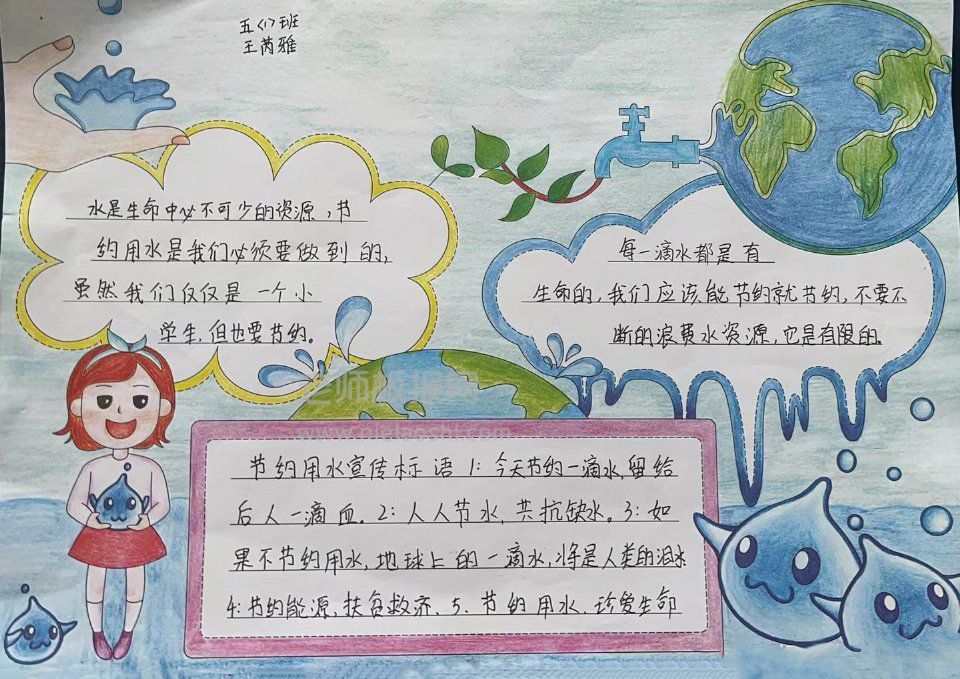 五(1)班
王芮雅
水是生命中必不可少的资源,节
约用水是我们必须要做到的,
虽然我们仅仅是一个小
学生,但也要节约。
每一滴水都是有
生命的,我们应该能节约就节约,不要不
断的浪费水资源,它是有限的。
节约用水宣传标语1:今天节约一滴水,留给
后人一滴血。2:人人节水,共抗缺水。3:如
果不节约用水,地球上的一滴水,将是人类的泪水
4:节约能源,扶贫救济、5、节约用水、珍爱生命